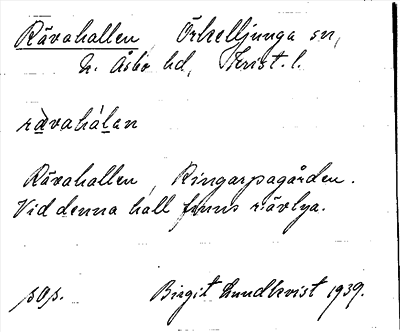 Rävahallen, Örkelljunga sn,
N. Åsbo hd, Krist. l.
rävahálan
Rävahallen, Ringarpagården.
Vid denna hall finns rävlya.
pop.
Birgit Lundkvist 1939.